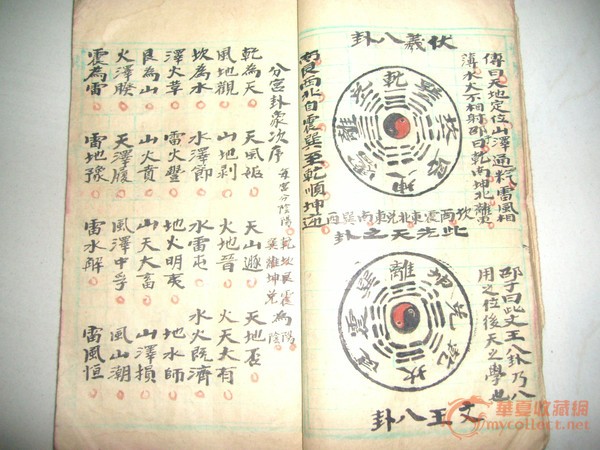 伏義八卦
傳曰天地定位山澤通氣雷風相
薄水火不相射邵曰乾南坤北離東
坎西震東北兌東南巽西
南艮西北自震巽至乾順坤逆
此先天之卦
乾
巽
坎
艮
坤
震
離
兌
邵子曰此文王八卦乃八
用之位後天之學也
離
坤
兌
乾
坎
艮
震
巽
文王八卦
分宮卦象次序
每宮分陰陽
乾坎艮震為陽
巽離坤兌為陰
乾為天 天風姤 天山遯 天地否
風地觀 山地剝 火地晉 火天大有
坎為水 水澤節 水雷屯 水火既濟
澤火革 雷火豐 地火明夷 地水師
艮為山 山火賁 山天大畜 山澤損
火澤睽 天澤履 風澤中孚 風山漸
震為雷 雷地豫 雷水解 雷風恒
華夏收藏網
mycollect.net